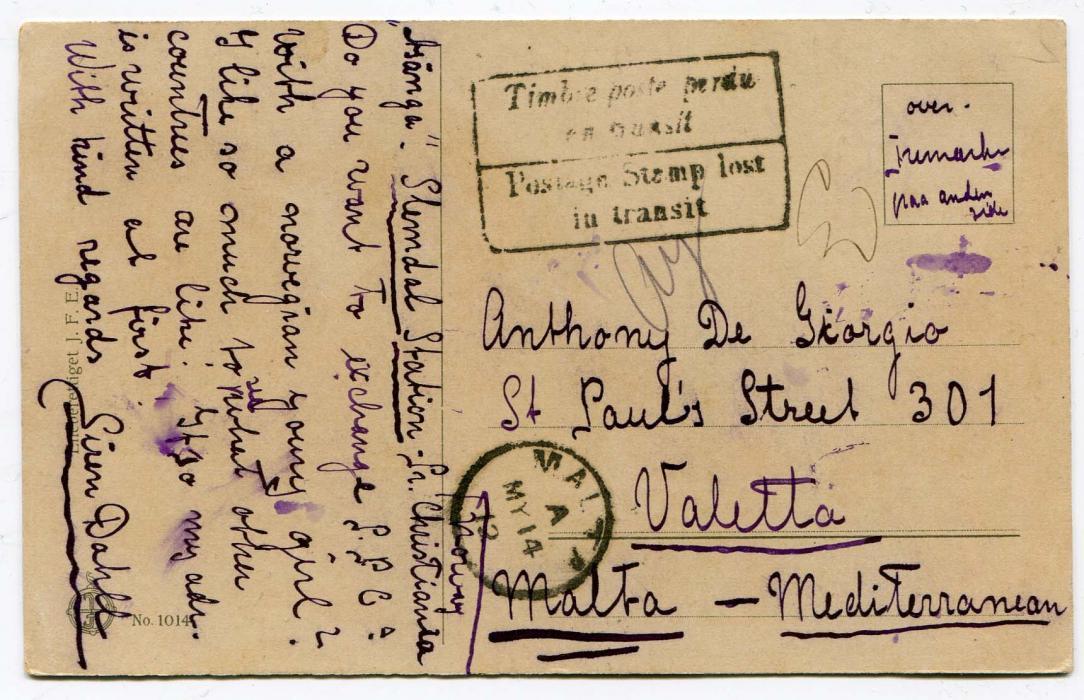 "Aånga". Slemdal Station - Pr. Christiania
Norway
Do you want to exchange P.P.C:
with a norwegian young girl?
I like so much to see what other
countries are like. If so my adr.
is written at first.
With kind regards
Siren Dahle
Timbre poste perdu
en transit
Postage Stamp lost
in transit
over.
Frimærke
paa anden
side
Anthony De Giorgio
St Paul's Street 301
Valetta
Malta — Mediterranean
MALTA
A
MY 14
12
Eneberettiget J. F. E.
No. 1014